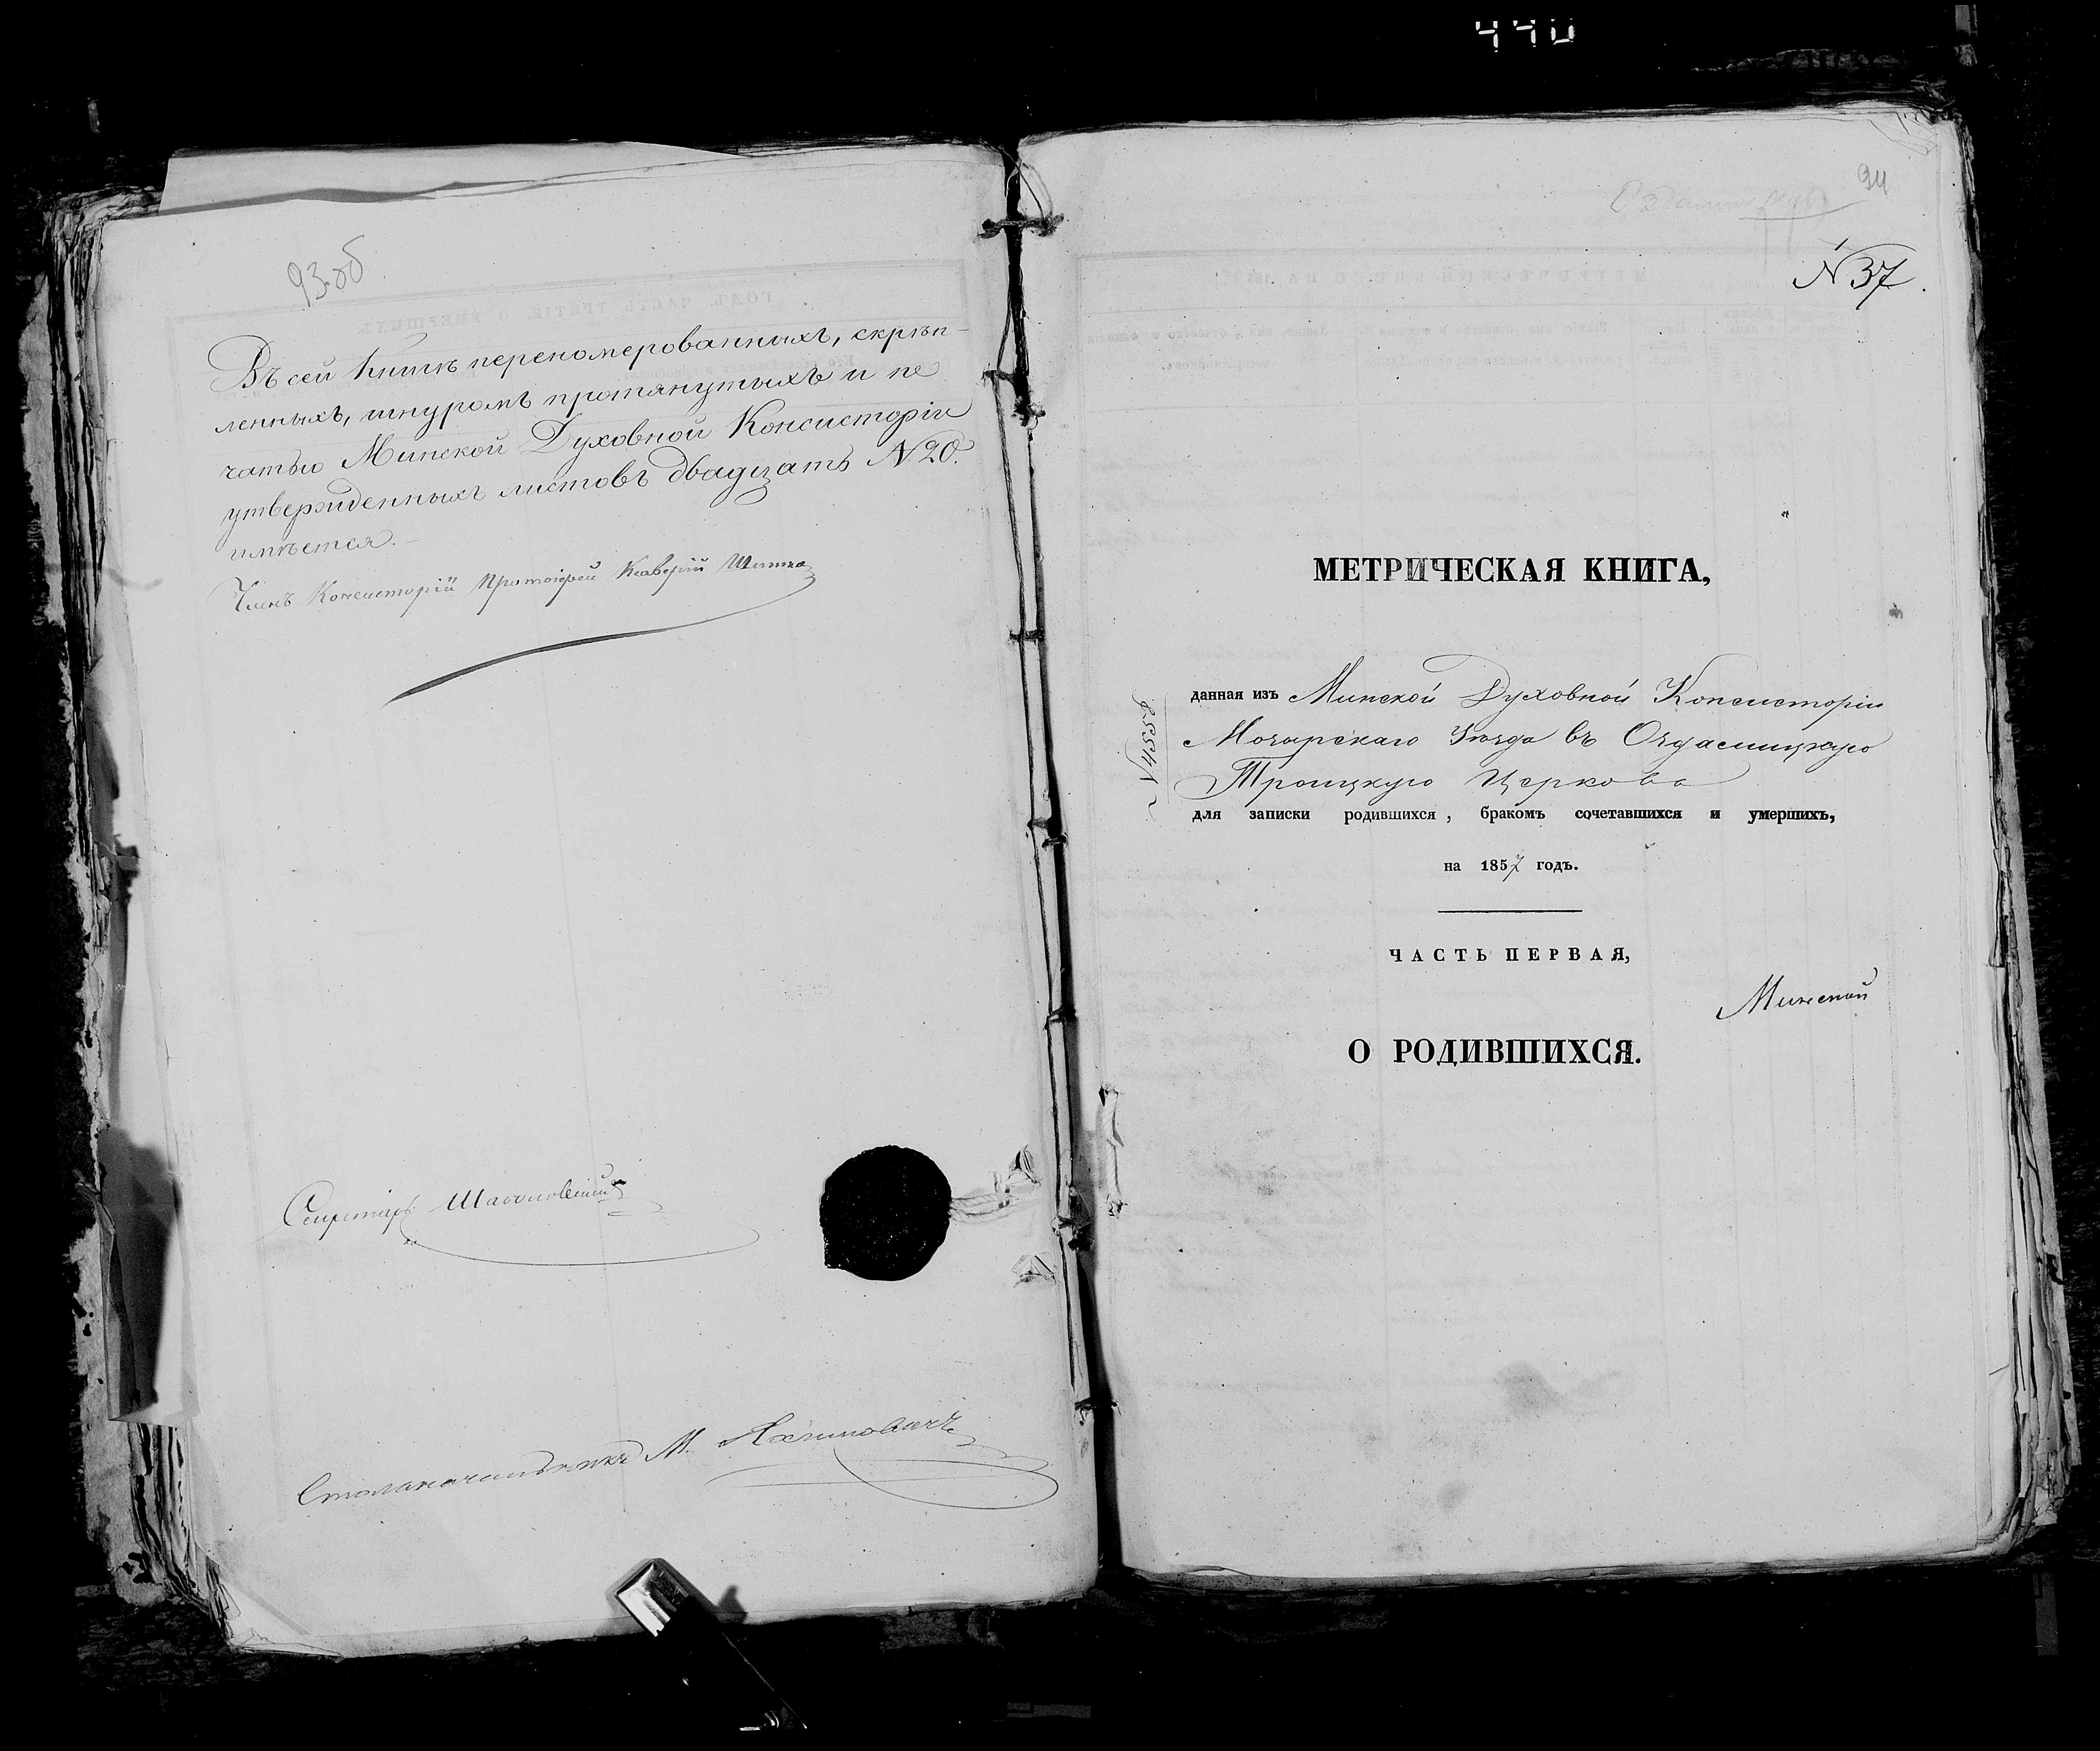 440
93об
Въ сей книгѣ переномерованныхъ, скрѣп-
ленныхъ, шнуромъ протянутыхъ и пе
чатью Минской Духовной Консисторіи
утвержденныхъ листовъ двадцать N 20.
имѣется.
Членъ Консисторіи Протоіерей
Секретарь
Столоначальникъ М.
94
N 37.
МЕТРИЧЕСКАЯ КНИГА,
N 4558
данная изъ Минской Духовной Консисторіи
Мозырскаго Уѣзда въ
Троицкую Церковь
для записки родившихся, бракомъ сочетавшихся и умершихъ,
на 1857 годъ.
ЧАСТЬ ПЕРВАЯ,
Минской
О РОДИВШИХСЯ.